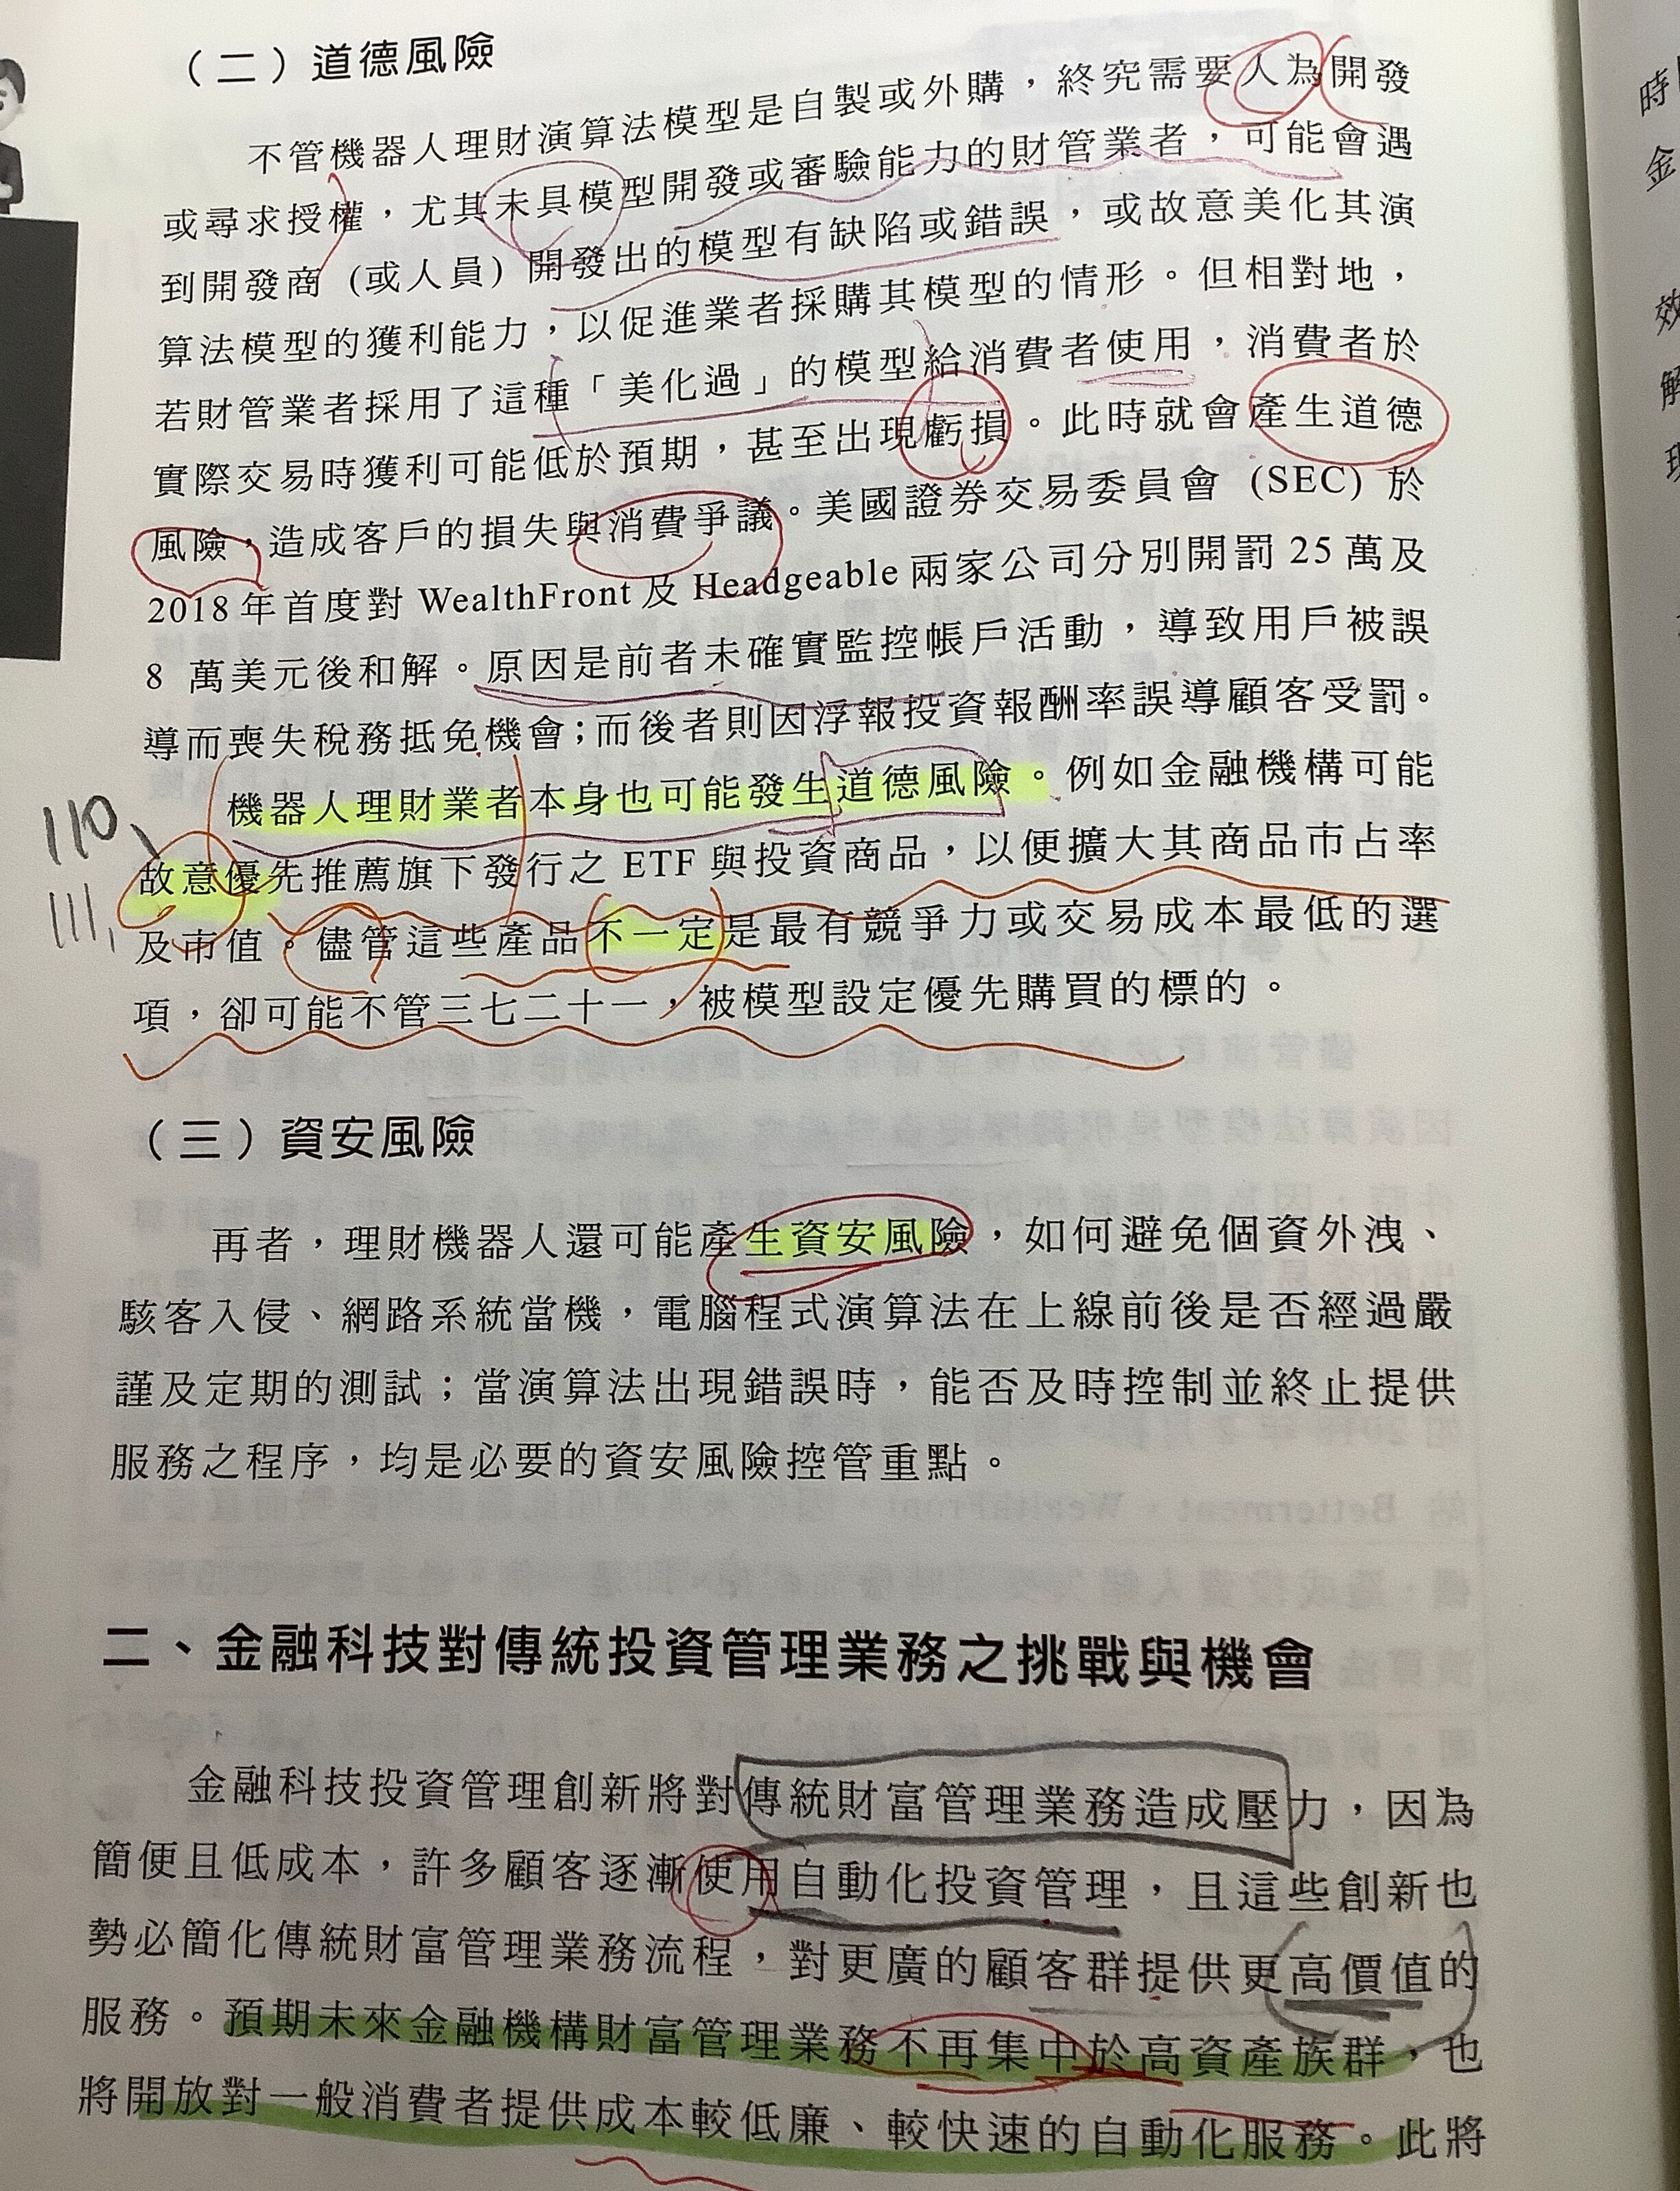 （二）道德風險
不管機器人理財演算法模型是自製或外購，終究需要人為開發
或尋求授權，尤其未具模型開發或審驗能力的財管業者，可能會遇
到開發商 (或人員) 開發出的模型有缺陷或錯誤，或故意美化其演
算法模型的獲利能力，以促進業者採購其模型的情形。但相對地，
若財管業者採用了這種「美化過」的模型給消費者使用，消費者於
實際交易時獲利可能低於預期，甚至出現虧損。此時就會產生道德
風險，造成客戶的損失與消費爭議。美國證券交易委員會 (SEC) 於
2018 年首度對 WealthFront 及 Headgeable 兩家公司分別開罰 25 萬及
8 萬美元後和解。原因是前者未確實監控帳戶活動，導致用戶被誤
導而喪失稅務抵免機會；而後者則因浮報投資報酬率誤導顧客受罰。
機器人理財業者本身也可能發生道德風險。例如金融機構可能
110、
故意優先推薦旗下發行之 ETF 與投資商品，以便擴大其商品市占率
111,
及市值。儘管這些產品不一定是最有競爭力或交易成本最低的選
項，卻可能不管三七二十一，被模型設定優先購買的標的。
（三）資安風險
再者，理財機器人還可能產生資安風險，如何避免個資外洩、
駭客入侵、網路系統當機，電腦程式演算法在上線前後是否經過嚴
謹及定期的測試；當演算法出現錯誤時，能否及時控制並終止提供
服務之程序，均是必要的資安風險控管重點。
二、金融科技對傳統投資管理業務之挑戰與機會
金融科技投資管理創新將對傳統財富管理業務造成壓力，因為
簡便且低成本，許多顧客逐漸使用自動化投資管理，且這些創新也
勢必簡化傳統財富管理業務流程，對更廣的顧客群提供更高價值的
服務。預期未來金融機構財富管理業務不再集中於高資產族群，也
將開放對一般消費者提供成本較低廉、較快速的自動化服務。此將
時
金
效
解